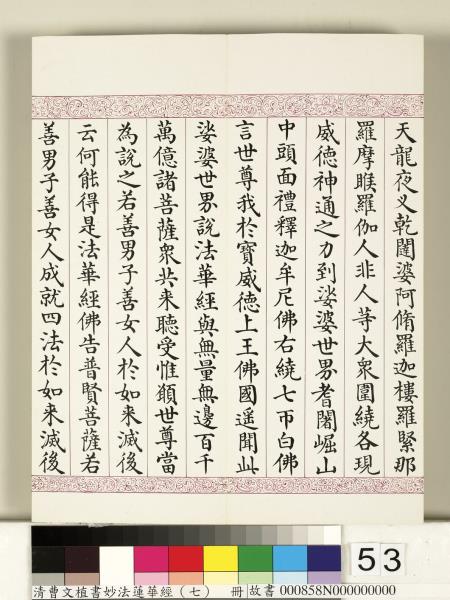 天龍夜叉乾闥婆阿脩羅迦樓羅緊那
羅摩睺羅伽人非人等大衆圍繞各現
威德神通之力到娑婆世界耆闍崛山
中頭面禮釋迦牟尼佛右繞七帀白佛
言世尊我於寶威德上王佛國遙聞此
娑婆世界說法華經與無量無邊百千
萬億諸菩薩衆共来聽受惟願世尊當
為說之若善男子善女人於如来滅後
云何能得是法華經佛告普賢菩薩若
善男子善女人成就四法於如来滅後
53
清曹文植書妙法蓮華經（七） 冊 故書 000858N000000000